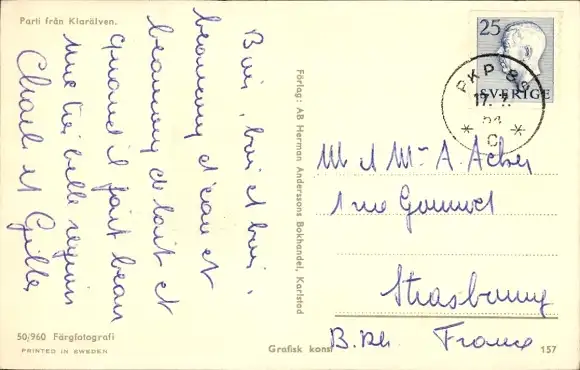 Parti från Klarälven.
Bois, bois et bois,
beaucoup d'eau et
beaucoup de lait et
quand il fait beau
une très belle région
Charl et Gilles
50/960 Färgfotografi
PRINTED IN SWEDEN
Förlag: AB Herman Anderssons Bokhandel, Karlstad
Grafisk konst
157
25
SVERIGE
PKP 89
17. 7.
C
M et Mme A. Acker
1 rue Gounod
Strasbourg
B.Rh. France